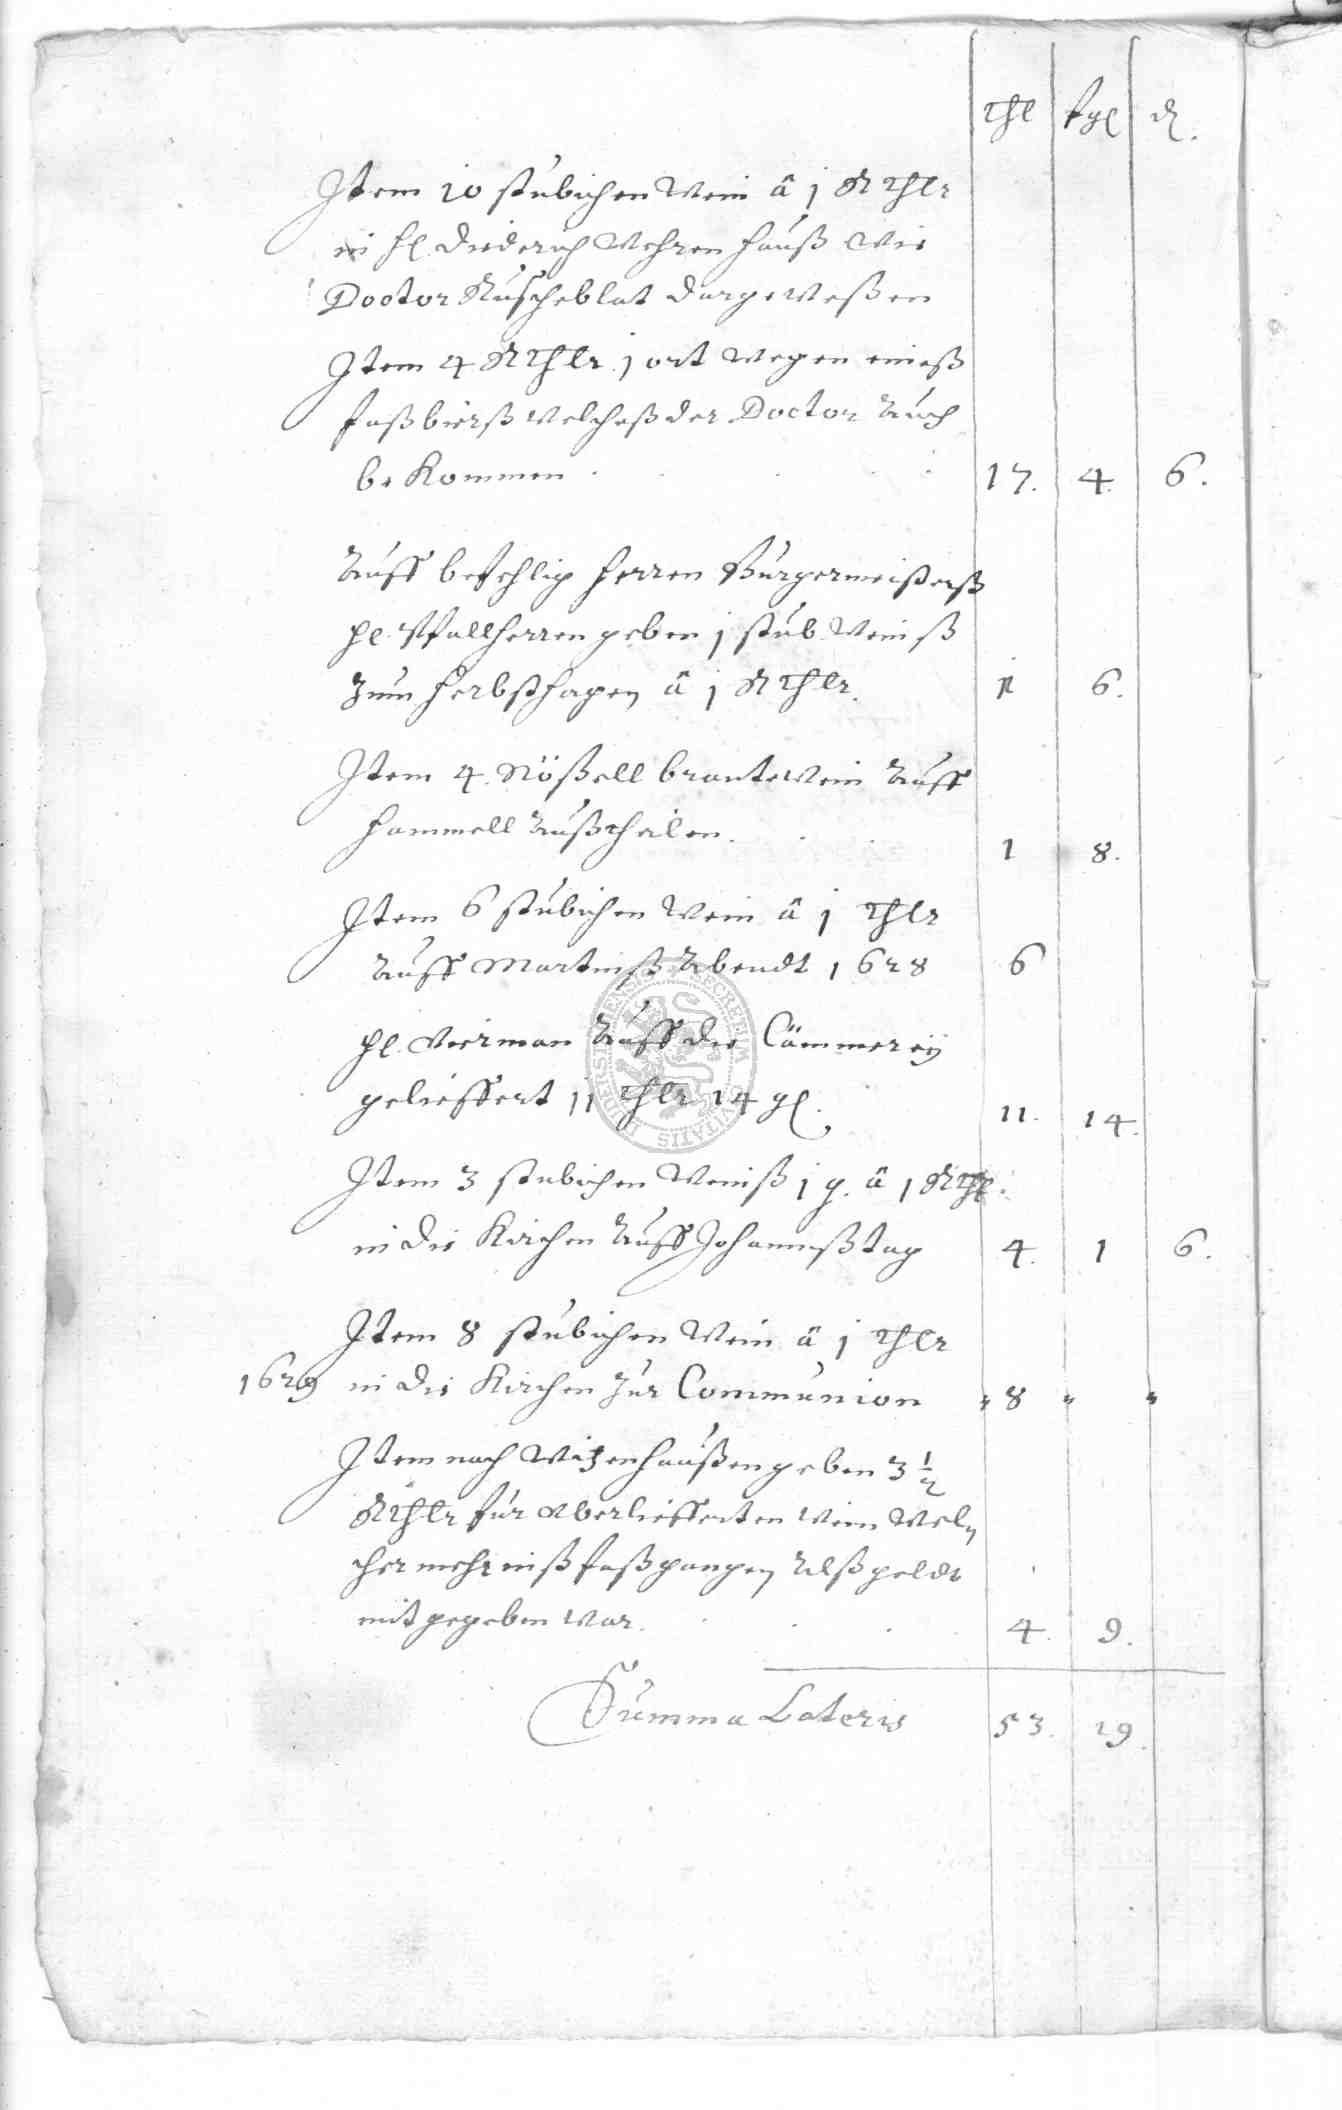 Thl fgl ₰.
Item 10 stübichen Wein â j RThlr
in H. Diederich Wehren Hauß Wie
Doctor Ruscheblat dargeweßen
Item 4 RThlr. j ort wegen eineß
faßbierß welcheß der Doctor Auch
bekommen 17. 4. 6.
Auff befehlig Herren Bürgermeisterß
Hl. Wallherren geben j stüb. Weinß
zum Herbsthagen â j RThlr. 1 6.
Item 4. Nößell brantewein Auff
Hammell Außtheilen. 1 8.
Item 6 stübichen Wein â j Thlr
Auff Martinß Abendt 1628 6
Hl. Vierman Auff die Cämmereÿ
gelieffert 11 Thlr 14 gl. 11. 14.
Item 3 stübichen Weinß j q. â j RThl.
in die Kirchen Auff Johanneßtag 4. 1 6.
Item 8 stübichen Wein â j Thlr
1629 in die Kirchen zur Communion " 8 " "
Item nach Witzenhaußen geben 3 1/2
RThlr für Uberliefferten Wein Wel-
cher mehr inß faß gangen Alß geldt
mit gegeben War. 4. 9.
Summa Lateris 53. 19.
SECRETUM CIVITATIS